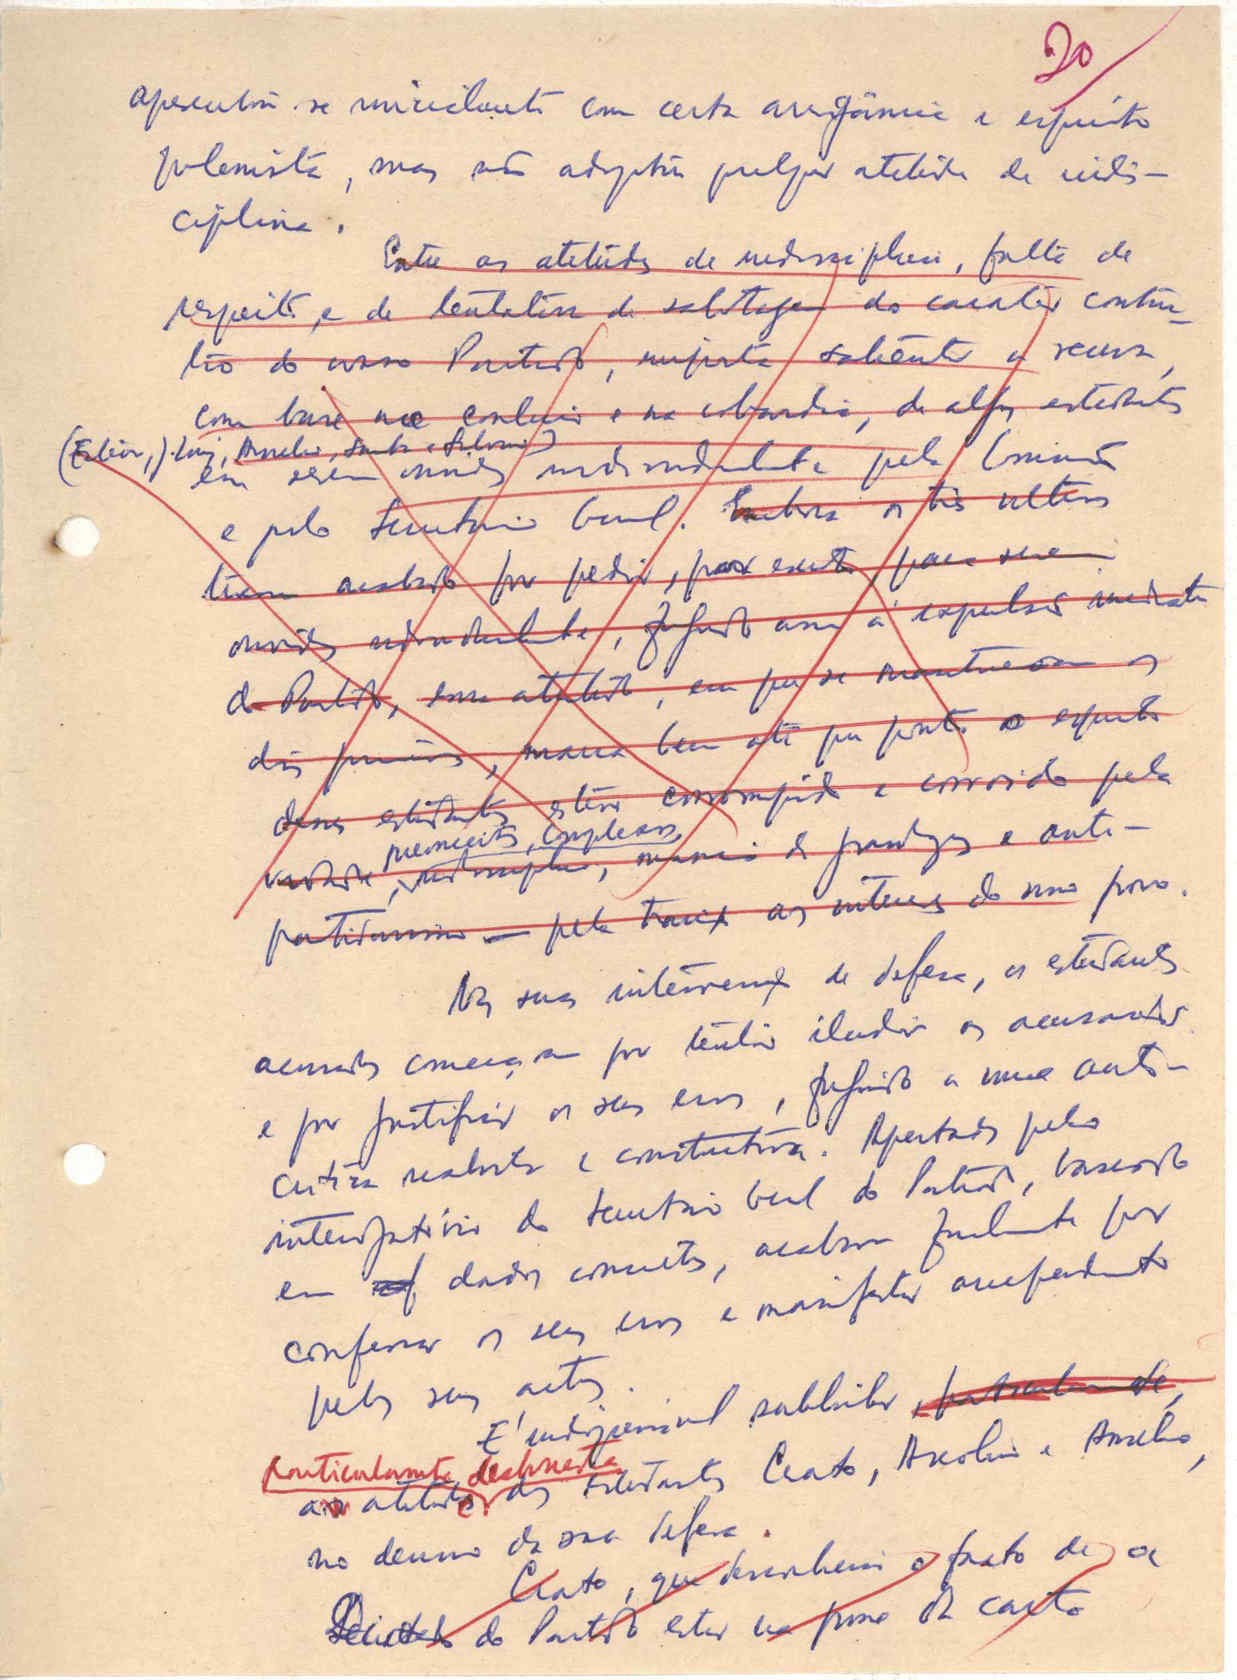 20
apresentou-se inicialmente com certa arrogância e espírito
polemista, mas não adoptou qualquer atitude de indis-
ciplina.
Entre as atitudes de indisciplina, falta de
respeito, e de tentativa de sabotagem do carácter constru-
tivo do nosso Partido, importa salientar a recusa,
com base no conluio e na cobardia, de alguns estudantes
em serem ouvidos individualmente pela Comissão
e pelo Secretário Geral. Embora os três últimos
tivessem acabado por pedir, para serem
ouvidos individualmente, fugindo assim à expulsão imediata
do Partido, essa atitude, em que se mantiveram os
dois primeiros, marca bem até que ponto o espírito
desses estudantes estava corrompido e corroído pela
vaidade, preconceitos, complexos, indisciplina, mania de grandeza e anti-
partidarismo — pela traição aos interesses do nosso povo.
Nas suas intervenções de defesa, os estudantes
acusados começaram por tentar iludir os acusadores
e por justificar os seus erros, fugindo a uma auto-
crítica realista e construtiva. Apertados pelo
interrogatório do Secretário Geral do Partido, baseado
em dados concretos, acabaram finalmente por
confessar os seus erros e manifestar arrependimento
pelos seus actos.
É indispensável sublinhar, particularmente,
particularmente, desonesta
as atitudes dos estudantes Crato, Ascolino e Amélio,
no decurso da sua defesa.
Crato, que desconhecia o facto de a
do Partido estar na posse da carta